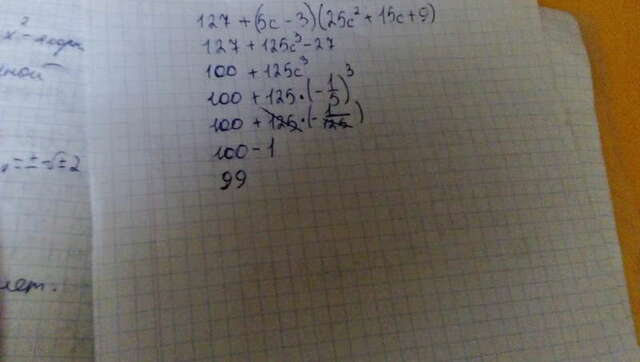 127 + (5c - 3)(25c² + 15c + 9)
127 + 125c³ - 27
100 + 125c³
100 + 125 · (-1/5)³
100 + 125 · (-1/125)
100 - 1
99